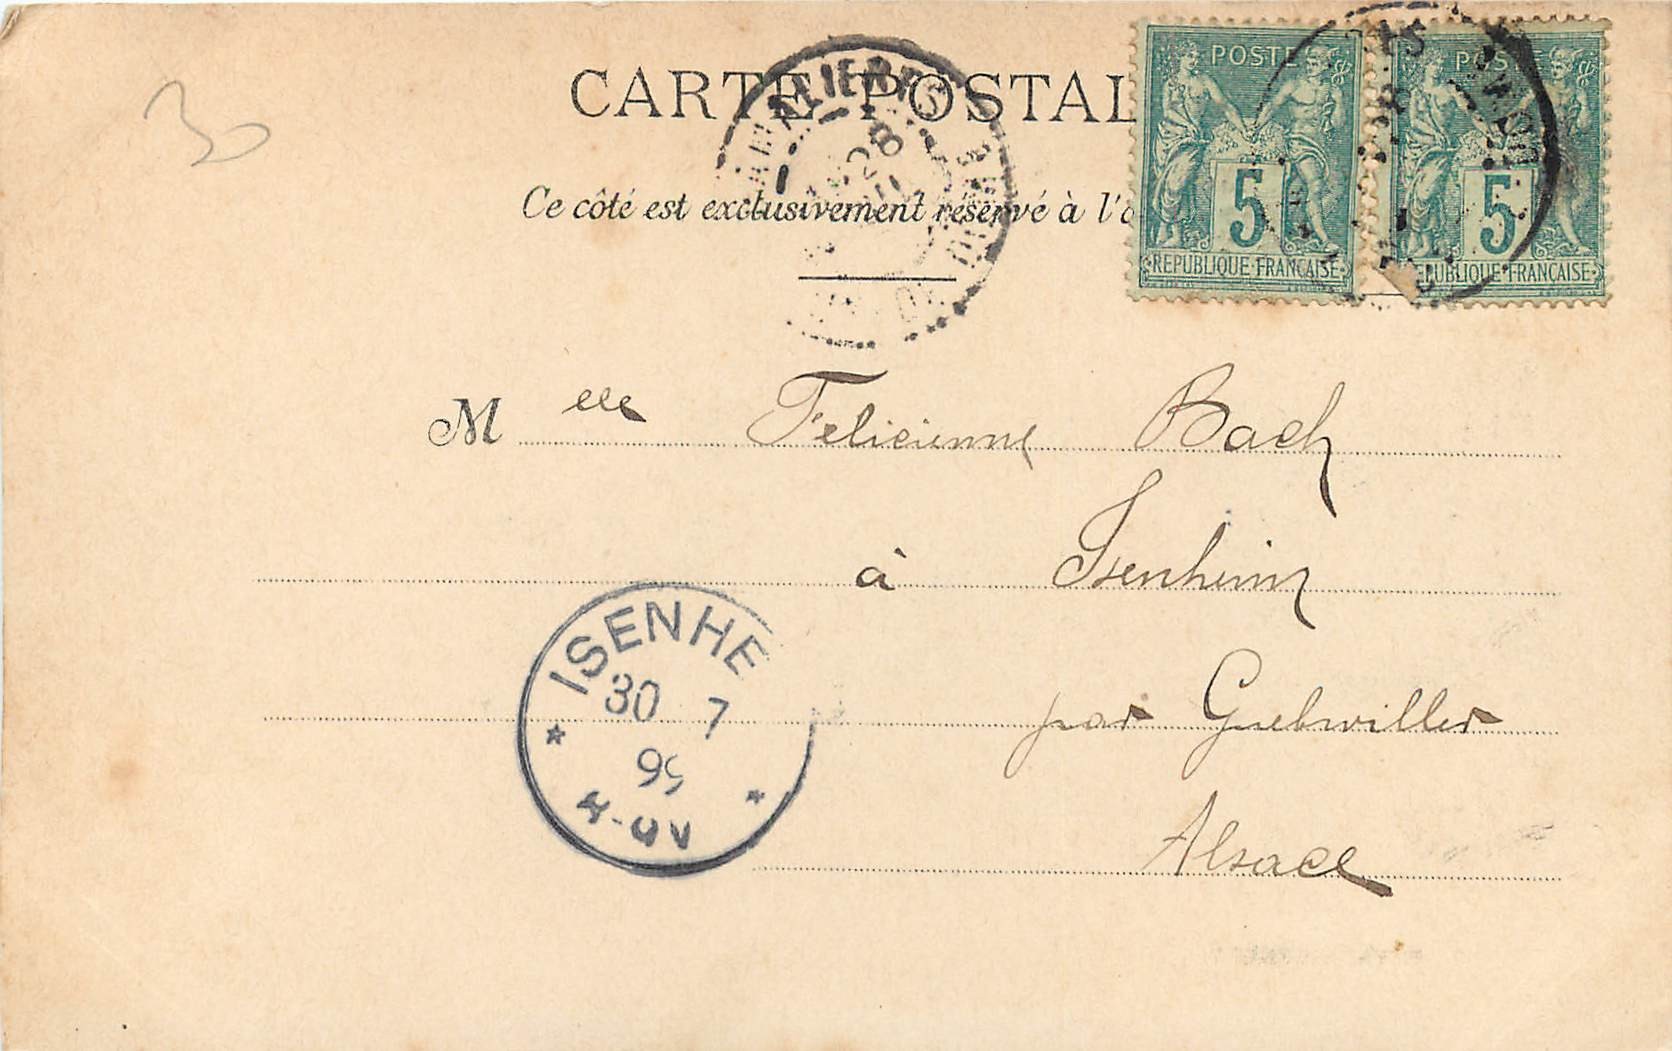 30
CARTE POSTAL
POSTE
5
REPUBLIQUE FRANÇAISE
5
REPUBLIQUE FRANÇAISE
28
Ce côté est exclusivement réservé à l'
Melle Felicienne Bach
à Isenheim
par Guebwiller
Alsace
ISENHE
30 7
99